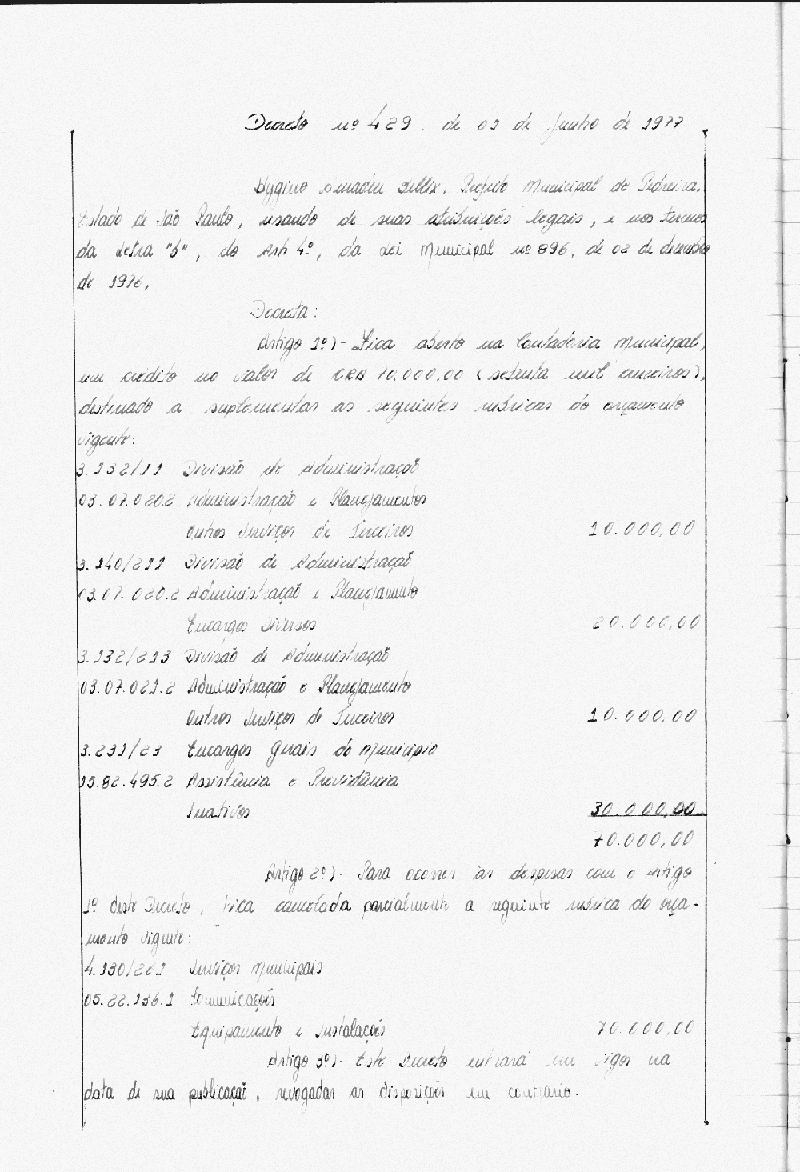 Decreto nº 429. de 01 de Junho de 1977
Hygino Amadeu Bellix, Prefeito Municipal de Pedreira,
Estado de São Paulo, usando de suas atribuições legais, e nos termos
da Letra "b", do Art. 4º, da Lei Municipal nº 896, de 02 de dezembro
de 1976,
Decreta:
Artigo 1º)- Fica aberto na Contadoria Municipal,
um crédito no valor de CR$ 70.000,00 (setenta mil cruzeiros),
destinado a suplementar as seguintes rubricas do orçamento
vigente:
3.132/11 Divisão de Administração
03.07.020.2 Administração e Planejamentos
Outros Serviços de Terceiros 10.000,00
3.140/211 Divisão de Administração
03.07.020.2 Administração e Planejamento
Encargos Diversos 20.000,00
3.132/213 Divisão de Administração
03.07.021.2 Administração e Planejamento
Outros Serviços de Terceiros 10.000,00
3.231/23 Encargos Gerais do Município
15.82.495.2 Assistência e Previdência
Inativos 30.000,00
70.000,00
Artigo 2º)- Para ocorrer às despesas com o artigo
1º deste Decreto, fica cancelada parcialmente a seguinte rubrica do orça-
mento vigente:
4.130/261 Serviços Municipais
05.22.136.1 Comunicações
Equipamento e Instalações 70.000,00
Artigo 3º)- Este Decreto entrará em vigor na
data de sua publicação, revogadas as disposições em contrário.